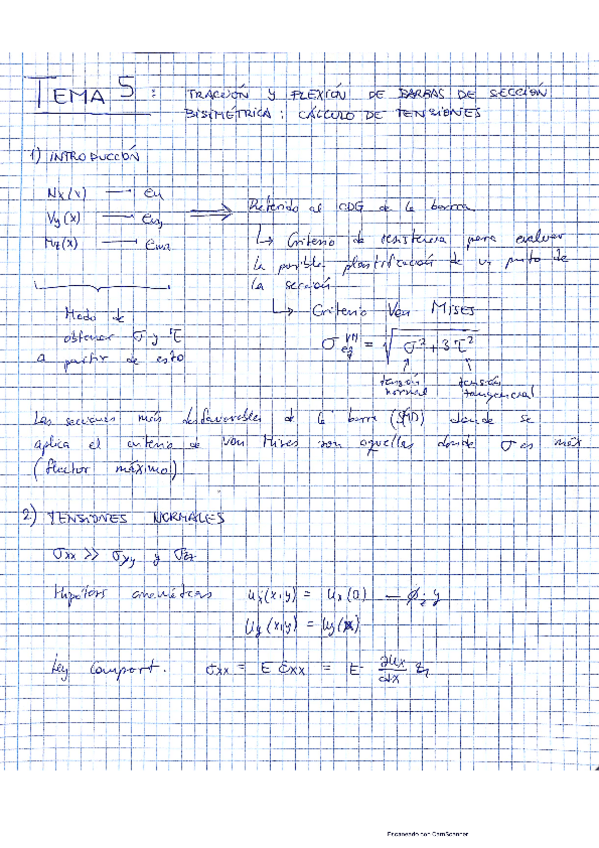 TEMA 5 : TRACCIÓN Y FLEXIÓN DE BARRAS DE SECCIÓN
BISIMÉTRICA : CÁLCULO DE TENSIONES
1) INTRODUCCIÓN
Nx(x) —
Vy(x) —
Mz(x) —
⇒ Referido al CDG de la barra
↳ Criterio de resistencia para evaluar
la posible plastificación de un punto de
la sección
↳ Criterio Von MISES
σ eq VM = √σ² + 3τ²
tensión normal
tensión tangencial
Modo de
obtener σ y τ
a partir de esto
Las secciones más desfavorables de la barra donde se
aplica el criterio de Von Mises son aquellas donde σ es máx
(flector máximo)
2) TENSIONES NORMALES
σxx >> σyy y σzz
Hipótesis cinemáticas ux(x,y) = ux(0) — ϕz y
uy(x,y) = uy(x)
Ley Comport. σxx = E εxx = E · ∂ux/∂x
Escaneado con CamScanner